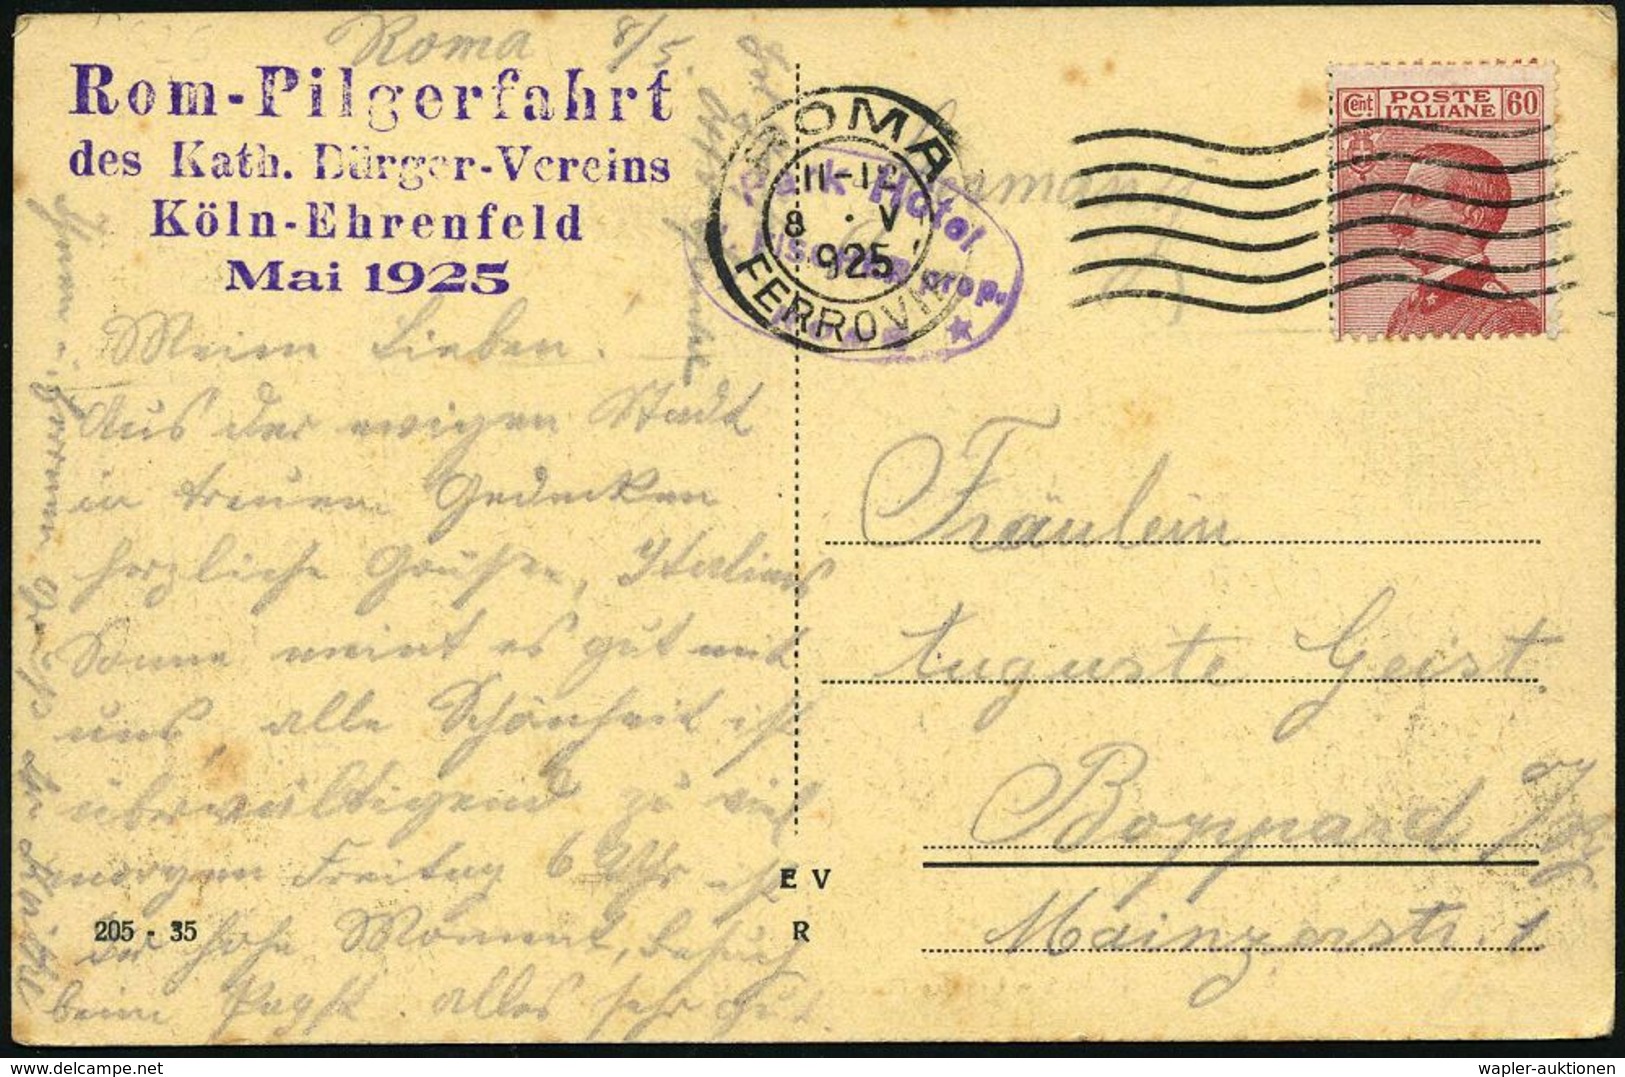 Roma 8/5.
Rom-Pilgerfahrt
des Kath. Bürger-Vereins
Köln-Ehrenfeld
Mai 1925
Meine Lieben!
Aus der ewigen Stadt
in treuem Gedenken
herzliche Grüße, Italiens
Sonne meint es gut mit
uns, alle Schönheit ist
überwältigend zu viel
morgen Freitag 6 Uhr ist
der hohe Moment, Besuch
beim Papst. alles sehr gut.
205 - 35
E V
R
ROMA
FERROVIA
11-12
8 · V
925
Park Hotel
prop.
POSTE
ITALIANE
Cent. 60
Germania
Fräulein
Auguste Geist.
Boppard
Mainzerstr. 1
wapler-auktionen